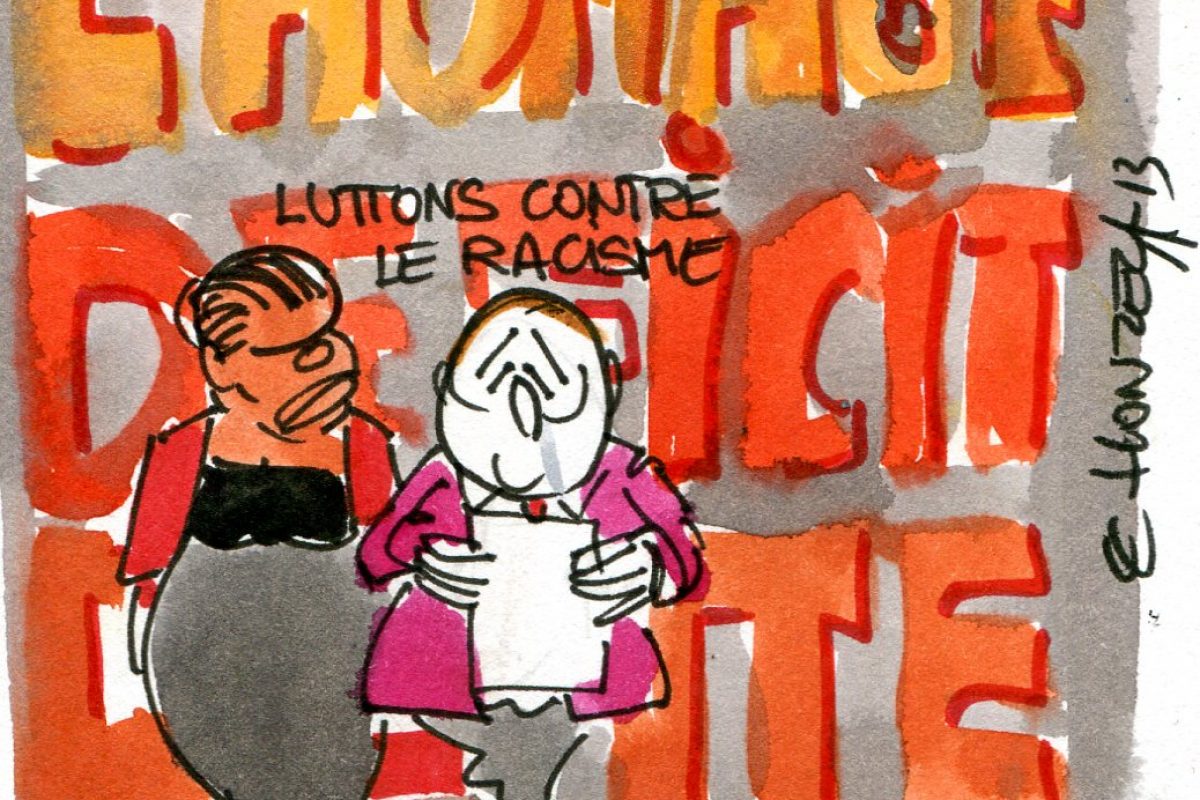 CHOMAGE
LUTTONS CONTRE
LE RACISME
DEFiCiT
HONZEC 13